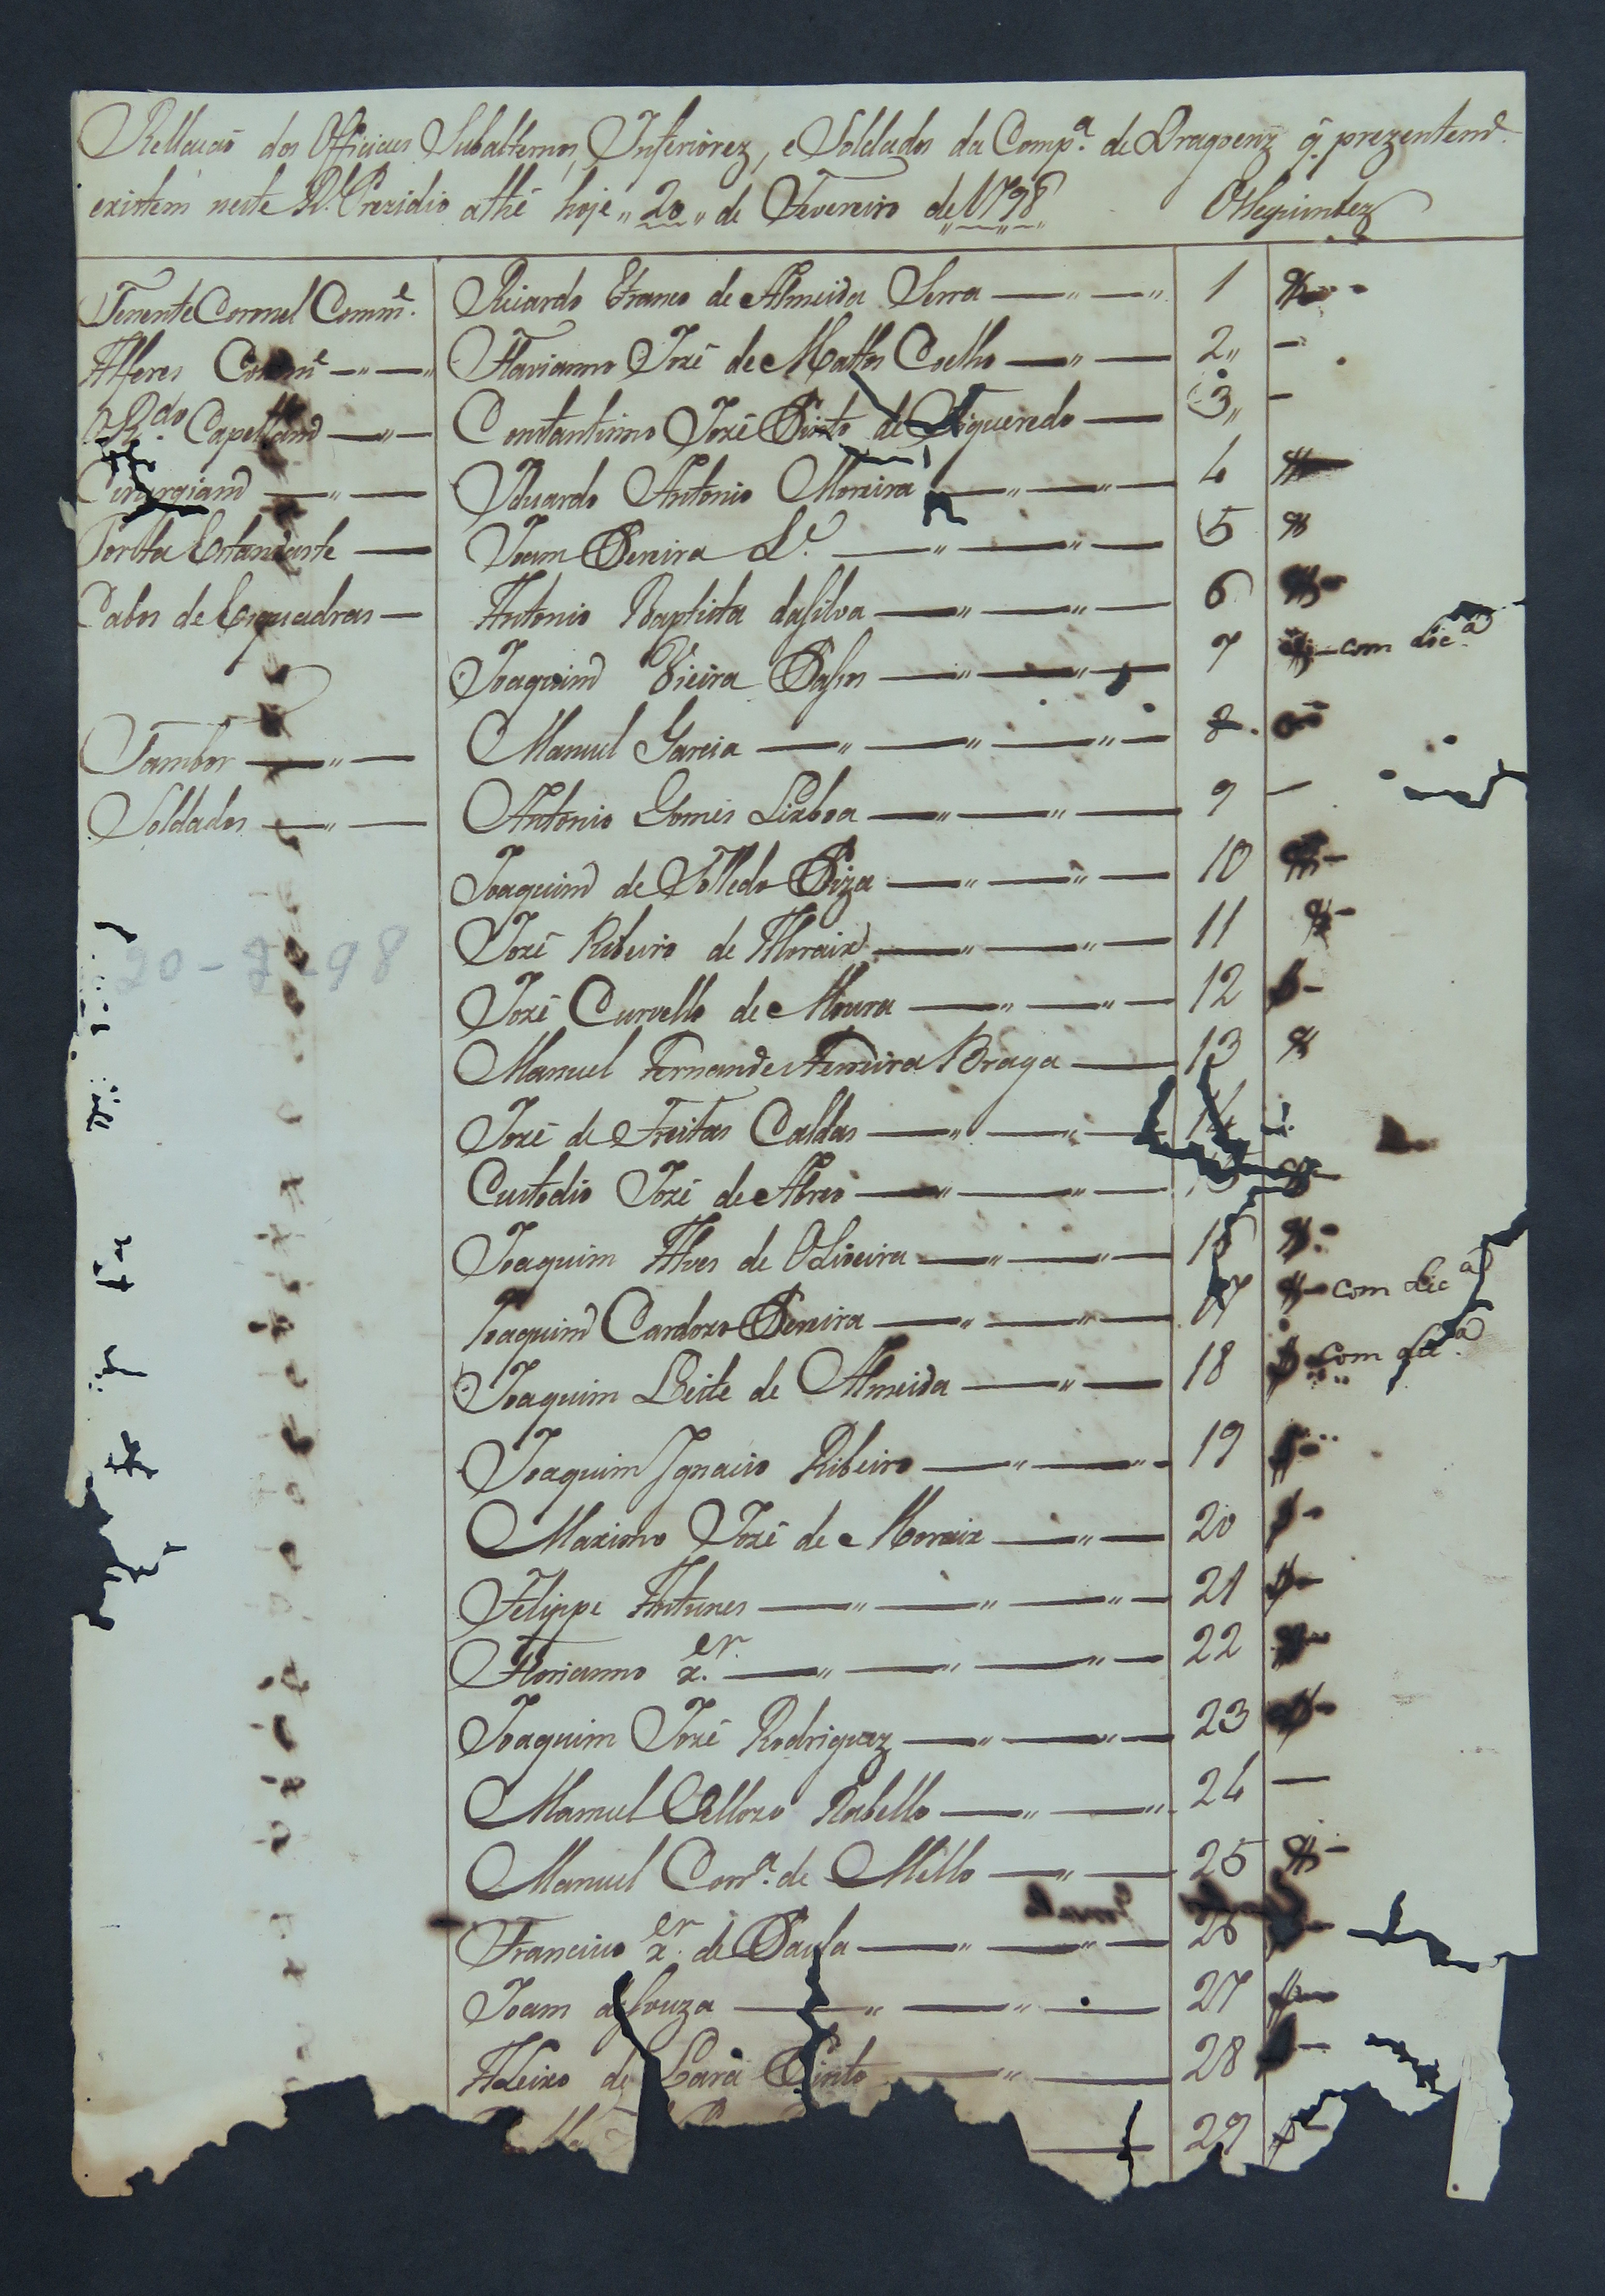 Rellacaõ dos Officiaes Subalternos, Inferiorez, e Soldados da Comp.ª de Dragoenz q̃ prezentem.e
existem neste R.l Prezidio athé hoje,, 20,, de Fevereiro de 1798 OSSeguintez
Tenente Coronel Comm.e Ricardo Franco de Almeida Serra 1
Alferes Comm.e Flavianno Jozé de Mattos Coelho 2
O R.do Capellam Constantinno Jozé Pinto de Figueredo 3
Cirurgiam Eduardo Antonio Moreira 4
Portta Estandarte Joam Pereira L.e 5
Cabos de Esquadras Antonio Baptista daSilva 6
Joaquim Vieira Passos 7 com Lic.ª
Tambor Manuel Garcia 8
Soldados Antonio Gomes Lixboa 9
Joaquim de Tolledo Piza 10
20-2-98
Jozé Ribeiro de Moraiz 11
Jozé Curvello de Moura 12
Manuel Fernandes Ferreira Braga 13
Jozé de Freitas Caldas 14
Custodio Jozé de Abreo
Joaquim Alves de OLiveira 16
Joaquim Cardozo Pereira 17 com Lic.ª
Joaquim Leite de Almeida 18 com Lic.ª
Joaquim Ignacio Ribeiro 19
Maximo Jozé de Moraiz 20
Felippe Antunes 21
Florianno X.er 22
Joaquim Jozé Rodriguez 23
Manuel Vellozo Rabello 24
Manuel Corr.ª de Mello 25
Francisco X.er de Paula 26
Joam deSouza 27
Aleixo de Lara Pinto 28
29